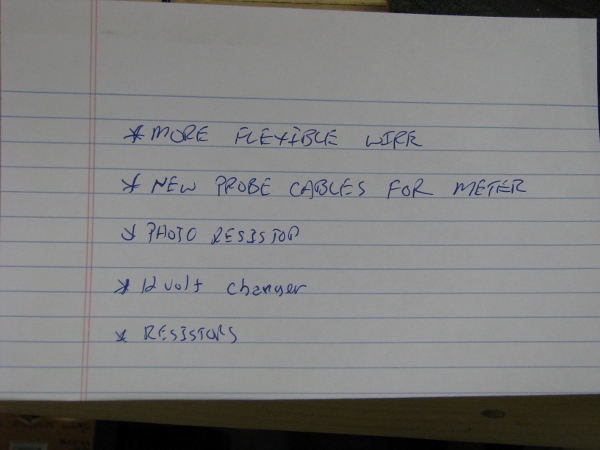 * MORE FLEXIBLE WIRE
* NEW PROBE CABLES FOR METER
* PHOTO RESISTOR
* 12 volt changer
* RESISTORS